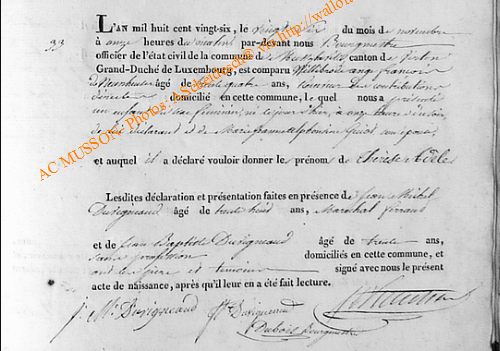 33
L'AN mil huit cent vingt-six, le vingt du mois de novembre
à onze heures du matin par-devant nous Bourgmestre
officier de l'état civil de la commune de canton de Virton
Grand-Duché de Luxembourg, est comparu ange françois
âgé de trente quatre ans, Receveur des contributions
directes domicilié en cette commune, lequel nous a présenté
un enfant du sexe féminin, né le jour d'hier, à onze heures du soir
de lui déclarant et de Marie jeanne son épouse
et auquel il a déclaré vouloir donner le prénom de Thérèse Adèle
Lesdites déclaration et présentation faites en présence de jean Michel
Duvigneaud âgé de trente huit ans, Maréchal ferrant
et de jean Baptiste Duvigneaud âgé de trente ans,
sans profession domiciliés en cette commune, et
ont les père et témoins signé avec nous le présent
acte de naissance, après qu'il leur en a été fait lecture.
j. Ml Duvigneaud
JB Duvigneaud
Dubois Bourgmestre
AC MUSSON Portail